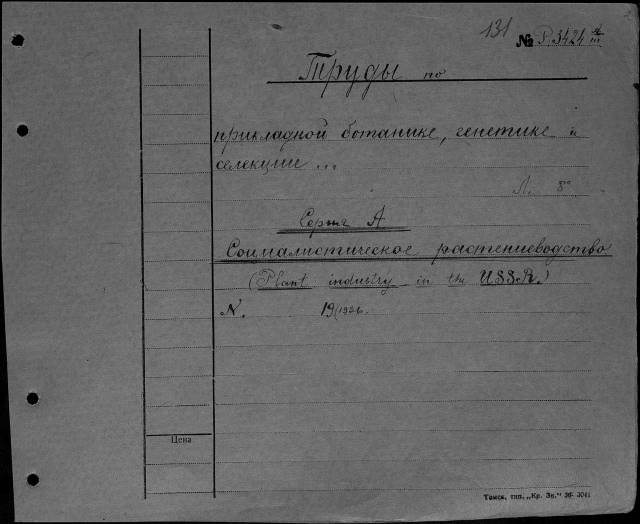 131
№ P. 3424 A/III
Труды по
прикладной ботанике, генетике и
селекции ...
Л. 8°
Серия А
Социалистическое растениеводство
(Plant industry in the USSR.)
N. 19/1936.
Цена
Томск, тип. „Кр. Зн." 36- 3041